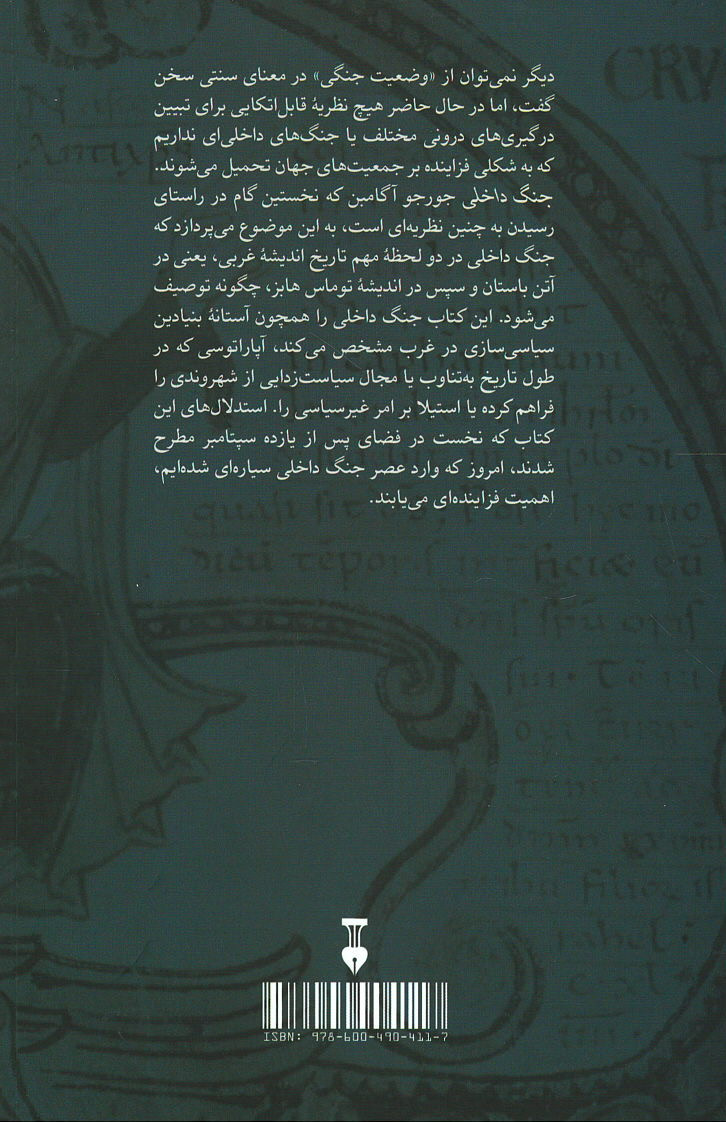 دیگر نمی‌توان از «وضعیت جنگی» در معنای سنتی سخن
گفت، اما در حال حاضر هیچ نظریهٔ قابل‌اتکایی برای تبیین
درگیری‌های درونی مختلف یا جنگ‌های داخلی‌ای نداریم
که به شکلی فزاینده بر جمعیت‌های جهان تحمیل می‌شوند.
جنگ داخلی جورجو آگامبن که نخستین گام در راستای
رسیدن به چنین نظریه‌ای است، به این موضوع می‌پردازد که
جنگ داخلی در دو لحظهٔ مهم تاریخ اندیشهٔ غربی، یعنی در
آتن باستان و سپس در اندیشهٔ توماس هابز، چگونه توصیف
می‌شود. این کتاب جنگ داخلی را همچون آستانهٔ بنیادین
سیاسی‌سازی در غرب مشخص می‌کند، آپاراتوسی که در
طول تاریخ به‌تناوب یا مجال سیاست‌زدایی از شهروندی را
فراهم کرده یا استیلا بر امر غیرسیاسی را. استدلال‌های این
کتاب که نخست در فضای پس از یازده سپتامبر مطرح
شدند، امروز که وارد عصر جنگ داخلی سیاره‌ای شده‌ایم،
اهمیت فزاینده‌ای می‌یابند.
ISBN: 978-600-490-411-7